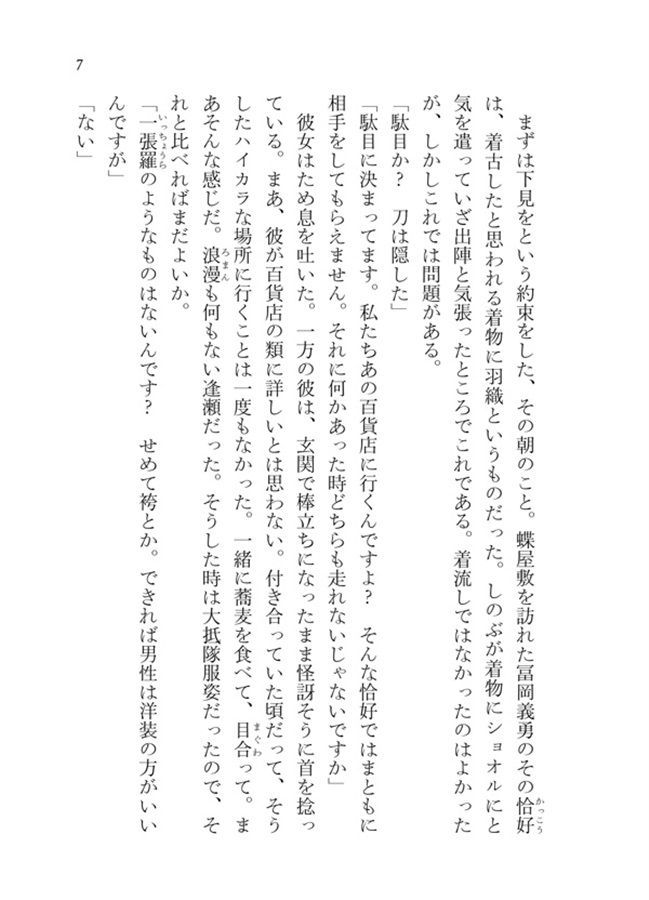 7
まずは下見をという約束をした、その朝のこと。蝶屋敷を訪れた冨岡義勇のその恰好
は、着古したと思われる着物に羽織というものだった。しのぶが着物にショオルにと
気を遣っていざ出陣と気張ったところでこれである。着流しではなかったのはよかった
が、しかしこれでは問題がある。
「駄目か？　刀は隠した」
「駄目に決まってます。私たちあの百貨店に行くんですよ？　そんな恰好ではまともに
相手をしてもらえません。それに何かあった時どちらも走れないじゃないですか」
彼女はため息を吐いた。一方の彼は、玄関で棒立ちになったまま怪訝そうに首を捻っ
ている。まあ、彼が百貨店の類に詳しいとは思わない。付き合っていた頃だって、そう
したハイカラな場所に行くことは一度もなかった。一緒に蕎麦を食べて、目合って。ま
あそんな感じだ。浪漫も何もない逢瀬だった。そうした時は大抵隊服姿だったので、そ
れと比べればまだよいか。
「一張羅のようなものはないんです？　せめて袴とか。できれば男性は洋装の方がいい
んですが」
「ない」
かっこう
まぐわ
ろまん
いっちょうら